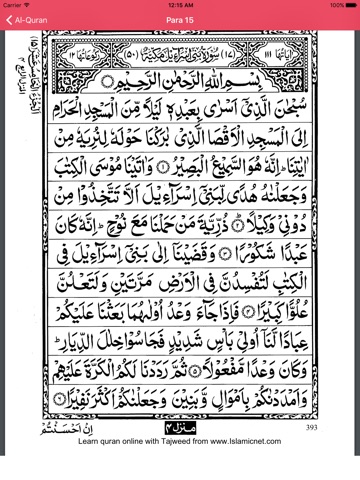 Carrier 12:15 AM 100%
Al-Quran Para 15
اٰیَاتُهَا ۱۱۱ (۱۷) سُوْرَةُ بَنِیْۤ اِسْرَآءِیْلَ مَكِّیَّةٌ (۵۰) رُكُوْعَاتُهَا ۱۲
بِسْمِ اللّٰهِ الرَّحْمٰنِ الرَّحِیْمِ
سُبْحٰنَ الَّذِیْۤ اَسْرٰی بِعَبْدِهٖ لَیْلًا مِّنَ الْمَسْجِدِ الْحَرَامِ
اِلَی الْمَسْجِدِ الْاَقْصَا الَّذِیْ بٰرَكْنَا حَوْلَهٗ لِنُرِیَهٗ مِنْ
اٰیٰتِنَا ؕ اِنَّهٗ هُوَ السَّمِیْعُ الْبَصِیْرُ ۝۱ وَاٰتَیْنَا مُوْسَی الْكِتٰبَ
وَجَعَلْنٰهُ هُدًی لِّبَنِیْۤ اِسْرَآءِیْلَ اَلَّا تَتَّخِذُوْا مِنْ
دُوْنِیْ وَكِیْلًا ۝۲ ذُرِّیَّةَ مَنْ حَمَلْنَا مَعَ نُوْحٍ ؕ اِنَّهٗ كَانَ
عَبْدًا شَكُوْرًا ۝۳ وَقَضَیْنَاۤ اِلٰی بَنِیْۤ اِسْرَآءِیْلَ فِی
الْكِتٰبِ لَتُفْسِدُنَّ فِی الْاَرْضِ مَرَّتَیْنِ وَلَتَعْلُنَّ
عُلُوًّا كَبِیْرًا ۝۴ فَاِذَا جَآءَ وَعْدُ اُوْلٰىهُمَا بَعَثْنَا عَلَیْكُمْ
عِبَادًا لَّنَاۤ اُولِیْ بَاْسٍ شَدِیْدٍ فَجَاسُوْا خِلٰلَ الدِّیَارِ ؕ
وَكَانَ وَعْدًا مَّفْعُوْلًا ۝۵ ثُمَّ رَدَدْنَا لَكُمُ الْكَرَّةَ عَلَیْهِمْ
وَاَمْدَدْنٰكُمْ بِاَمْوَالٍ وَّبَنِیْنَ وَجَعَلْنٰكُمْ اَكْثَرَ نَفِیْرًا ۝۶
اِنْ اَحْسَنْتُمْ منزل ۴ 393
Learn quran online with Tajweed from www.Islamicnet.com